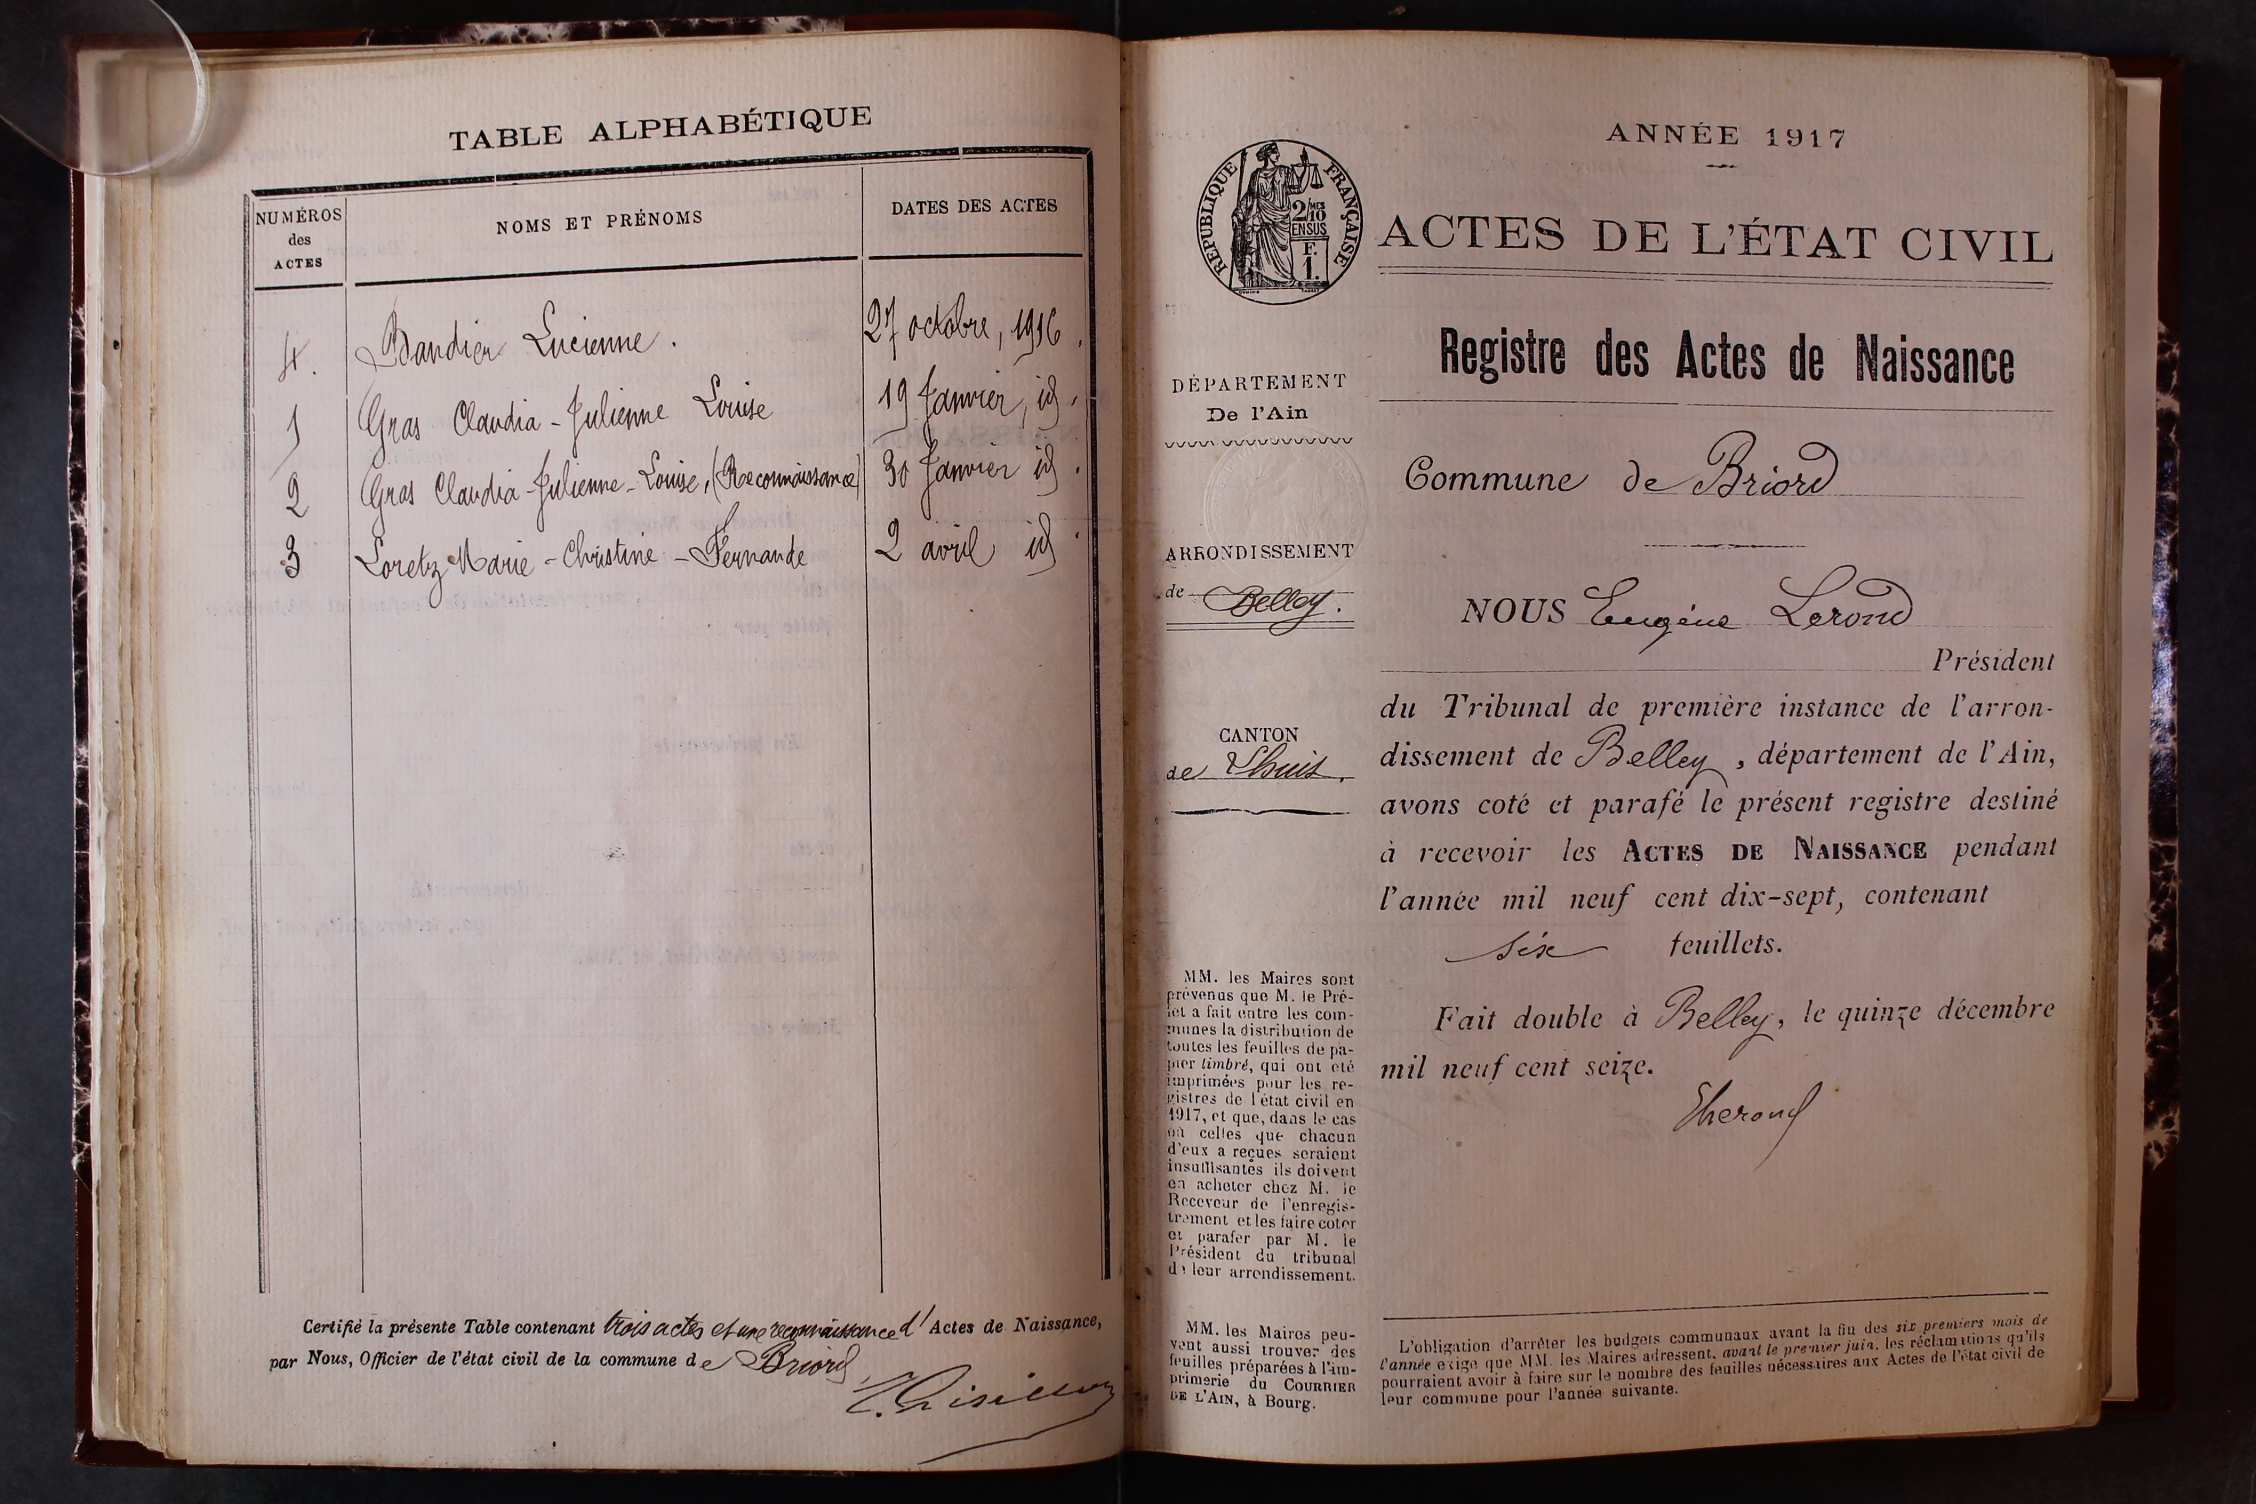 TABLE ALPHABÉTIQUE
NUMÉROS
des
ACTES
NOMS ET PRÉNOMS
DATES DES ACTES
4. Baudier Lucienne. 27 octobre, 1916.
1 Gras Claudia-Julienne Louise 19 Janvier, id.
2 Gras Claudia-Julienne-Louise, (Reconnaissance) 30 Janvier id.
3 Loretz Marie-Christine-Fernande 2 avril id.
Certifié la présente Table contenant trois actes et une reconnaissance d' Actes de Naissance,
par Nous, Officier de l'état civil de la commune de Briord,
ANNÉE 1917
RÉPUBLIQUE FRANÇAISE
2/10MES
EN SUS
F.
1.
ACTES DE L'ÉTAT CIVIL
Registre des Actes de Naissance
DÉPARTEMENT
De l'Ain
ARRONDISSEMENT
de Belley.
CANTON
de Lhuis.
MM. les Maires sont
prévenus que M. le Pré-
fet a fait entre les com-
munes la distribution de
toutes les feuilles de pa-
pier timbré, qui ont été
imprimées pour les re-
gistres de l'état civil en
1917, et que, dans le cas
où celles que chacun
d'eux a reçues seraient
insuffisantes ils doivent
en acheter chez M. le
Receveur de l'enregis-
trement et les faire coter
et parafer par M. le
Président du tribunal
de leur arrondissement.
MM. les Maires peu-
vent aussi trouver des
feuilles préparées à l'im-
primerie du COURRIER
DE L'AIN, à Bourg.
Commune de Briord
NOUS Eugène Lerond
Président
du Tribunal de première instance de l'arron-
dissement de Belley, département de l'Ain,
avons coté et parafé le présent registre destiné
à recevoir les ACTES DE NAISSANCE pendant
l'année mil neuf cent dix-sept, contenant
six feuillets.
Fait double à Belley, le quinze décembre
mil neuf cent seize.
L'obligation d'arrêter les budgets communaux avant la fin des six premiers mois de
l'année exige que MM. les Maires adressent, avant le premier juin, les réclamations qu'ils
pourraient avoir à faire sur le nombre des feuilles nécessaires aux Actes de l'état civil de
leur commune pour l'année suivante.